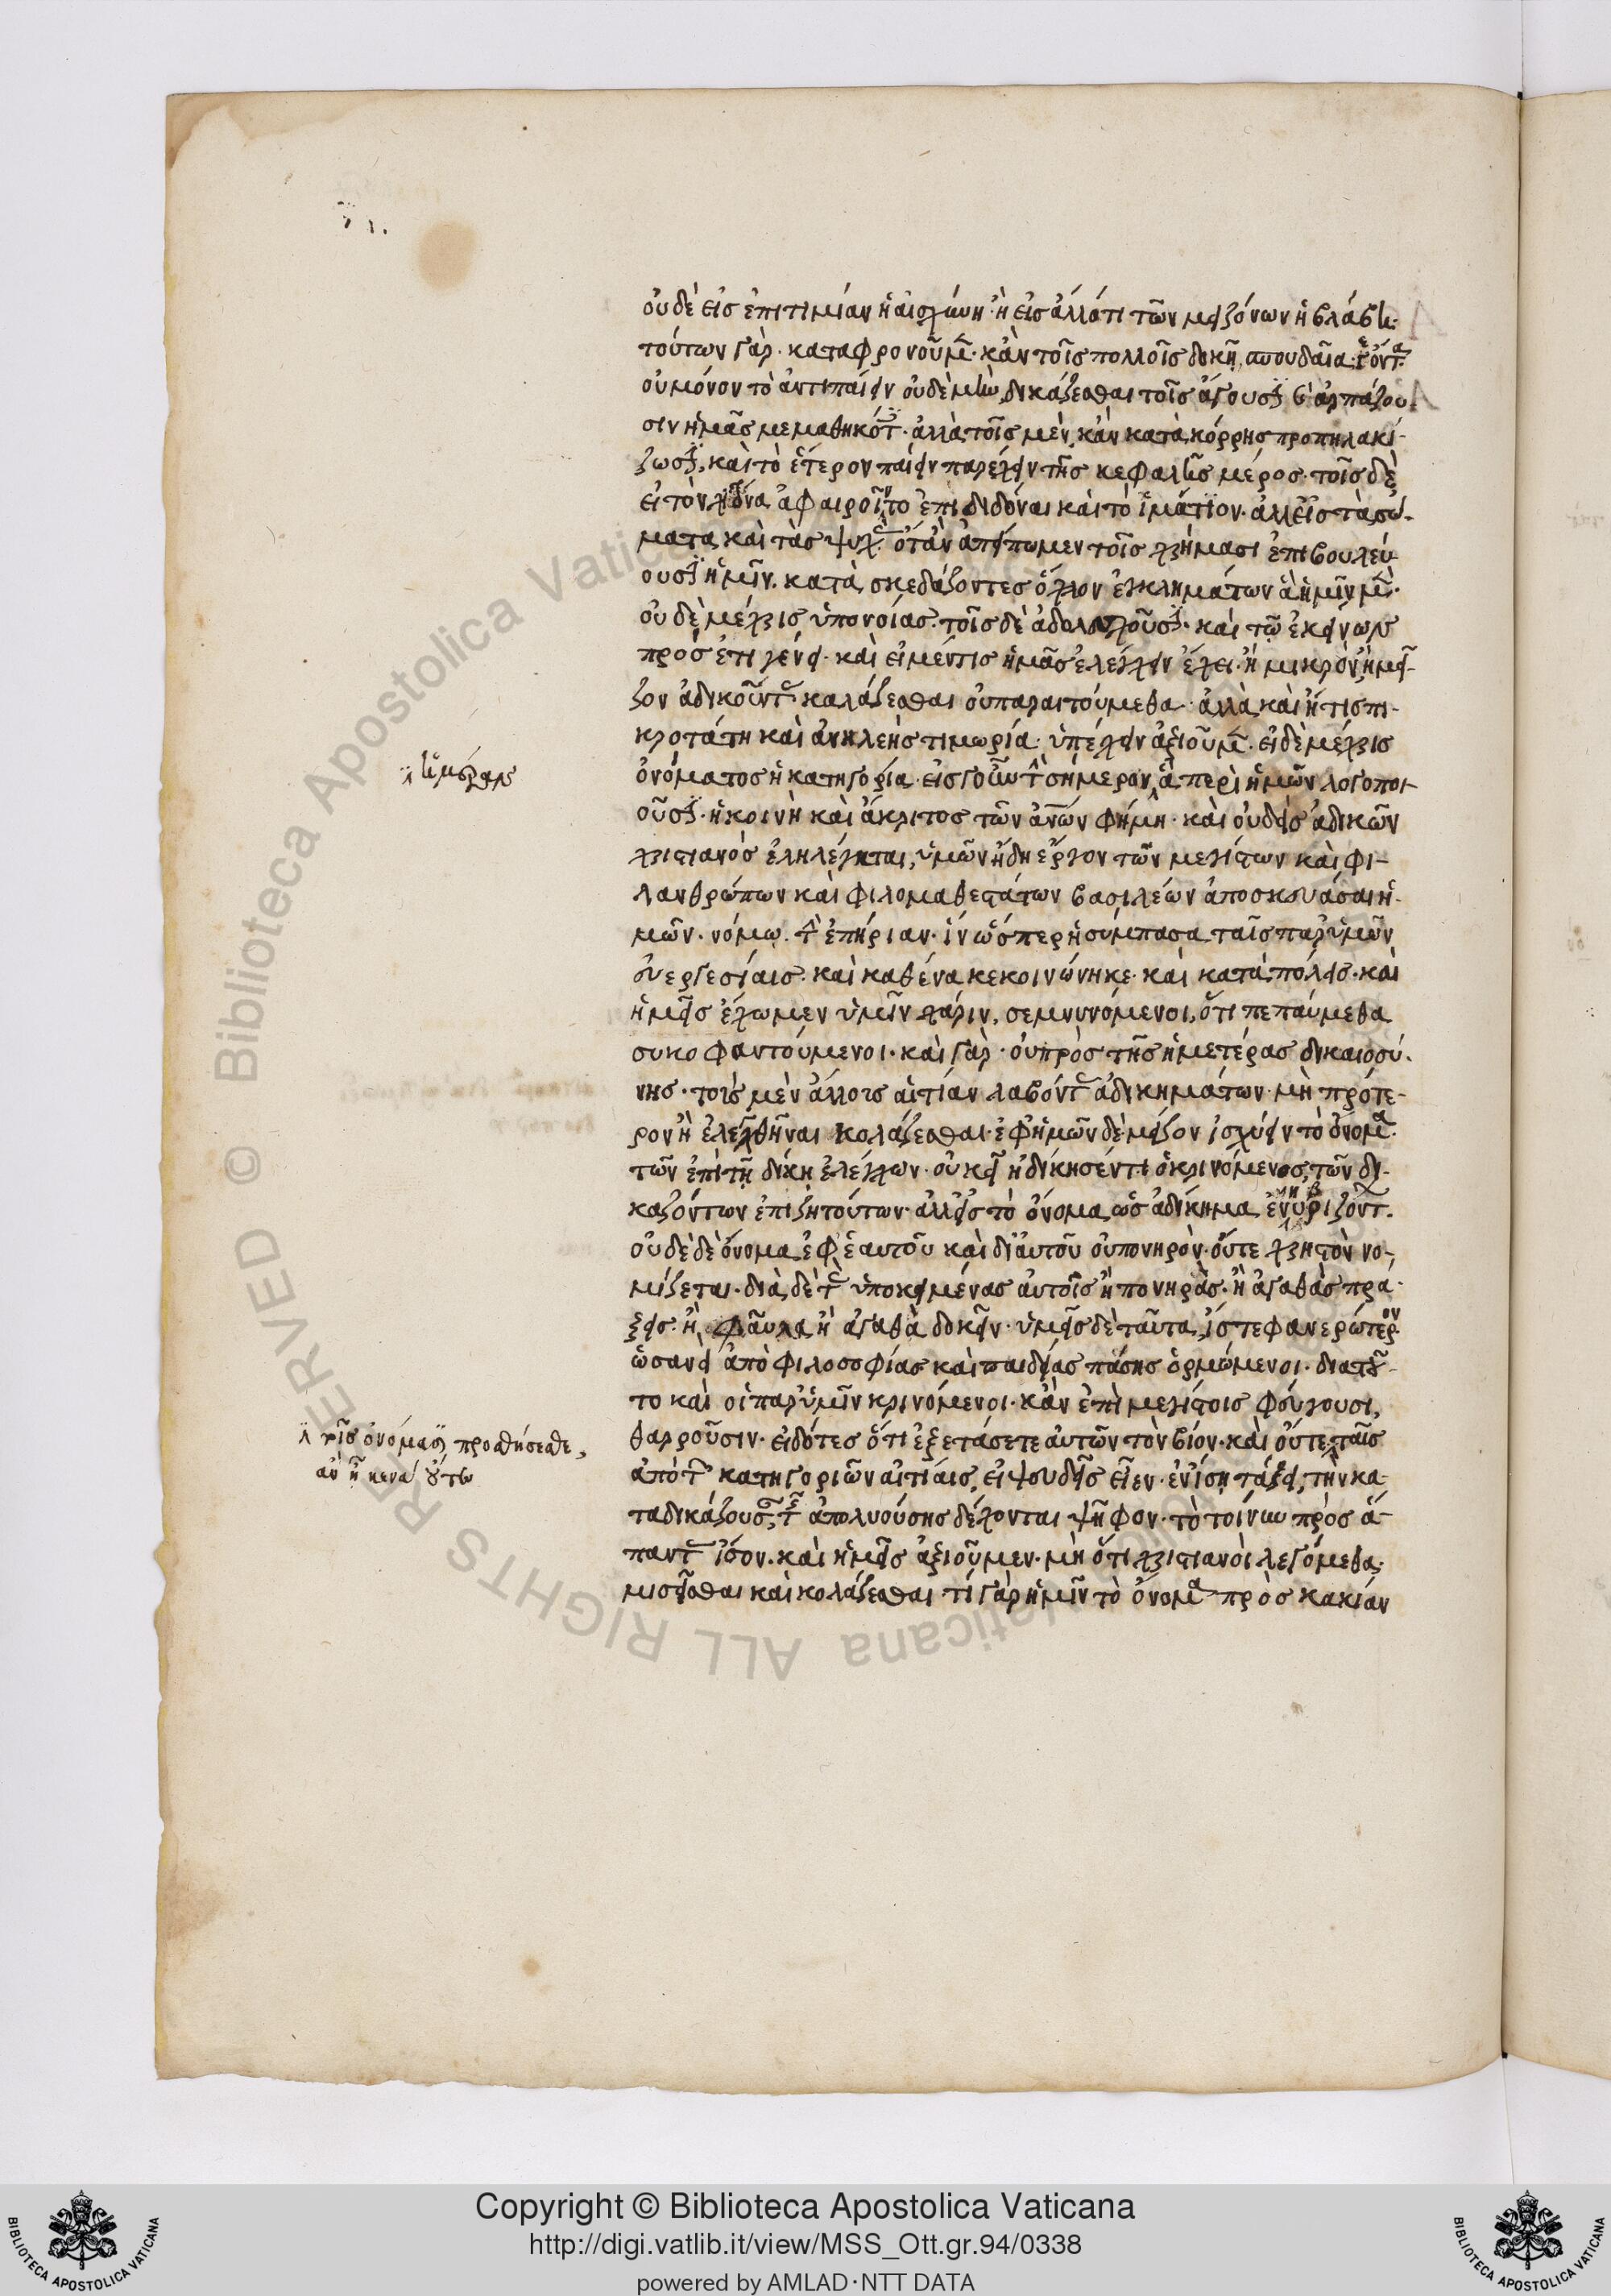 οὐδὲ εἰς ἐπιτιμίαν ἡ αἰσχύνη· ἢ εἰς ἄλλό τι τῶν μειζόνων ἡ βλάβη·
τούτων γὰρ· καταφρονοῦμεν· κἂν τοῖς πολλοῖς δοκῇ σπουδαῖα·
οὐ μόνον τὸ ἀντιπαίειν οὐδὲ μὴν δικάζεσθαι τοῖς ἄγουσι καὶ ἁρπάζου-
σιν ἡμᾶς μεμαθηκότες· ἀλλὰ τοῖς μὲν, κἂν κατὰ κόρρης προπηλακί-
ζωσι, καὶ τὸ ἕτερον παίειν παρέχειν τῆς κεφαλῆς μέρος· τοῖς δὲ
εἰ τὸν χιτῶνα ἀφαιροῖντο ἐπιδιδόναι καὶ τὸ ἱμάτιον· ἀλλ' εἰς τὰ σώ-
ματα καὶ τὰς ψυχὰς· ὅταν ἀπείπωμεν τοῖς χρήμασι ἐπιβουλεύ
ουσιν ἡμῖν· κατασκεδάζοντες ὄχλον ἐγκλημάτων ἃ ἡμῖν μὲν·
οὐδὲ μέχρις ὑπονοίας· τοῖς δὲ ἀδολεσχοῦσι· καὶ τῷ ἐκείνων
πρόσετι γένει· καὶ εἰ μέν τις ἡμᾶς ἐλέγχειν ἔχει· ἢ μικρὸν ἢ μεῖ-
ζον ἀδικοῦντας κολάζεσθαι οὐ παραιτούμεθα· ἀλλὰ καὶ ἥτις πι-
κροτάτη καὶ ἀνηλεὴς τιμωρία· ὑπέχειν ἀξιοῦμεν· εἰ δὲ μέχρις
ὀνόματος ἡ κατηγορία· εἰς γοῦν τὴν σήμερον, ἃ περὶ ἡμῶν λογοποι-
οῦσιν· ἡ κοινὴ καὶ ἄκριτος τῶν ἀνων φήμη· καὶ οὐδεὶς ἀδικῶν
χριστιανὸς ἐλήλεγκται, ὑμῶν ἤδη ἔργον τῶν μεγίστων καὶ φι-
λανθρώπων καὶ φιλομαθεστάτων βασιλέων ἀποσκευάσαι ἡ-
μῶν· νόμῳ· τὴν ἐπήριαν· ἵν' ὥσπερ ἡ σύμπασα ταῖς παρ' ὑμῶν
εὐεργεσίαις· καὶ καθ' ἕνα κεκοινώνηκε· καὶ κατὰ πόλεις· καὶ
ἡμεῖς ἔχωμεν ὑμῖν χάριν, σεμνυνόμενοι, ὅτι πεπαύμεθα
συκοφαντούμενοι· καὶ γὰρ· οὐ πρὸς τῆς ἡμετέρας δικαιοσύ-
νης· τοὺς μὲν ἄλλους αἰτίαν λαβόντας ἀδικημάτων· μὴ πρότε-
ρον ἢ ἐλεγχθῆναι κολάζεσθαι· ἐφ' ἡμῶν δὲ μεῖζον ἰσχύειν τὸ ὄνομα·
τῶν ἐπὶ τῇ δίκῃ ἐλέγχων· οὐκ εἰ ἠδίκησέν τι ὁ κρινόμενος, τῶν δι-
καζόντων ἐπιζητούντων· ἀλλ' εἰς τὸ ὄνομα, ὡς ἀδίκημα ἐνυβριζόντων.
οὐδὲ δὲ ὄνομα ἐφ' ἑαυτοῦ καὶ δι' αὐτοῦ οὐ πονηρὸν· οὔτε χρηστὸν νο-
μίζεται· διὰ δὲ τὰς ὑποκειμένας αὐτοῖς ἢ πονηρὰς· ἢ ἀγαθὰς πρά-
ξεις· ἢ φαῦλα ἢ ἀγαθὰ δοκεῖν· ὑμεῖς δὲ ταῦτα ἴστε φανερώτερον
ὡσανεὶ ἀπὸ φιλοσοφίας καὶ παιδείας πάσης ὁρμώμενοι· διὰ τοῦ-
το καὶ οἱ παρ' ὑμῖν κρινόμενοι· κἂν ἐπὶ μεγίστοις φεύγουσι,
θαρροῦσιν· εἰδότες ὅτι ἐξετάσετε αὐτῶν τὸν βίον· καὶ οὔτε ταῖς
ἀπὸ τῶν κατηγοριῶν αἰτίαις, εἰ ψευδεῖς εἶεν· ἐν ἴσῃ τάξει, τὴν κα-
ταδικάζουσαν, τῆς ἀπολυούσης δέχονται ψῆφον· τὸ τοίνυν πρὸς ἅ-
παντας ἴσον· καὶ ἡμεῖς ἀξιοῦμεν· μὴ ὅτι χριστιανοὶ λεγόμεθα·
μισεῖσθαι καὶ κολάζεσθαι τί γὰρ ἡμῖν τὸ ὄνομα πρὸς κακίαν
τοῖς ὀνόμασι προσθήσεσθε,
ἂν ᾖ κενά οὕτω
Biblioteca Apostolica Vaticana
ALL RIGHTS RESERVED © Biblioteca Apostolica Vaticana
Copyright © Biblioteca Apostolica Vaticana
http://digi.vatlib.it/view/MSS_Ott.gr.94/0338
powered by AMLAD·NTT DATA
BIBLIOTECA APOSTOLICA VATICANA
BIBLIOTECA APOSTOLICA VATICANA